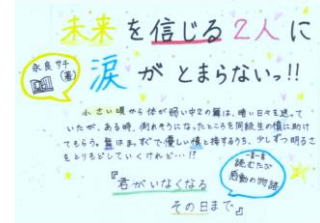 未来を信じる2人に
涙がとまらないっ!!
永良サチ
(著)
小さい頃から体が弱い中2の舞は、暗い日々を送って
いたが、ある時、倒れそうになったところを同級生の慎に助け
てもらう。舞はまっすぐで優しい慎と接するうち、少しずつ明るさ
をとりもどしていくけれど…!?
読むたび
感動の物語
『君がいなくなる
その日まで』